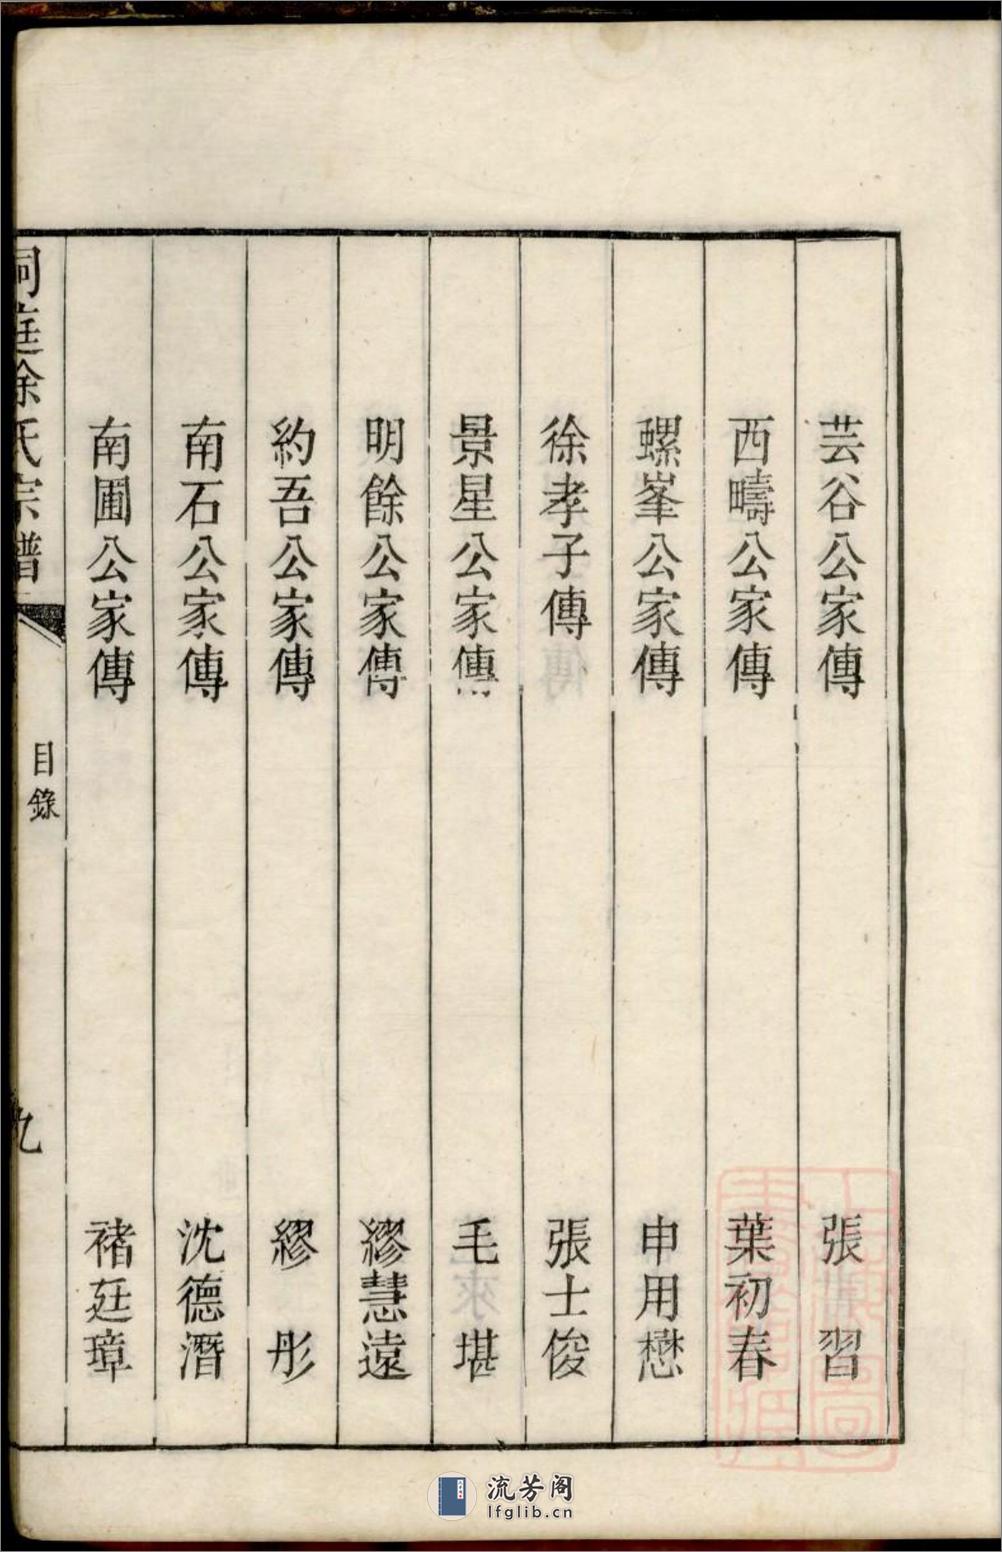 芸谷公家傳 張習
西疇公家傳 葉初春
螺峯公家傳 申用懋
徐孝子傳 張士俊
景星公家傳 毛堪
明餘公家傳 繆慧遠
約吾公家傳 繆彤
南石公家傳 沈德潛
南圃公家傳 褚廷璋
洞庭徐氏宗譜 目錄 九
流芳阁
lfglib.cn